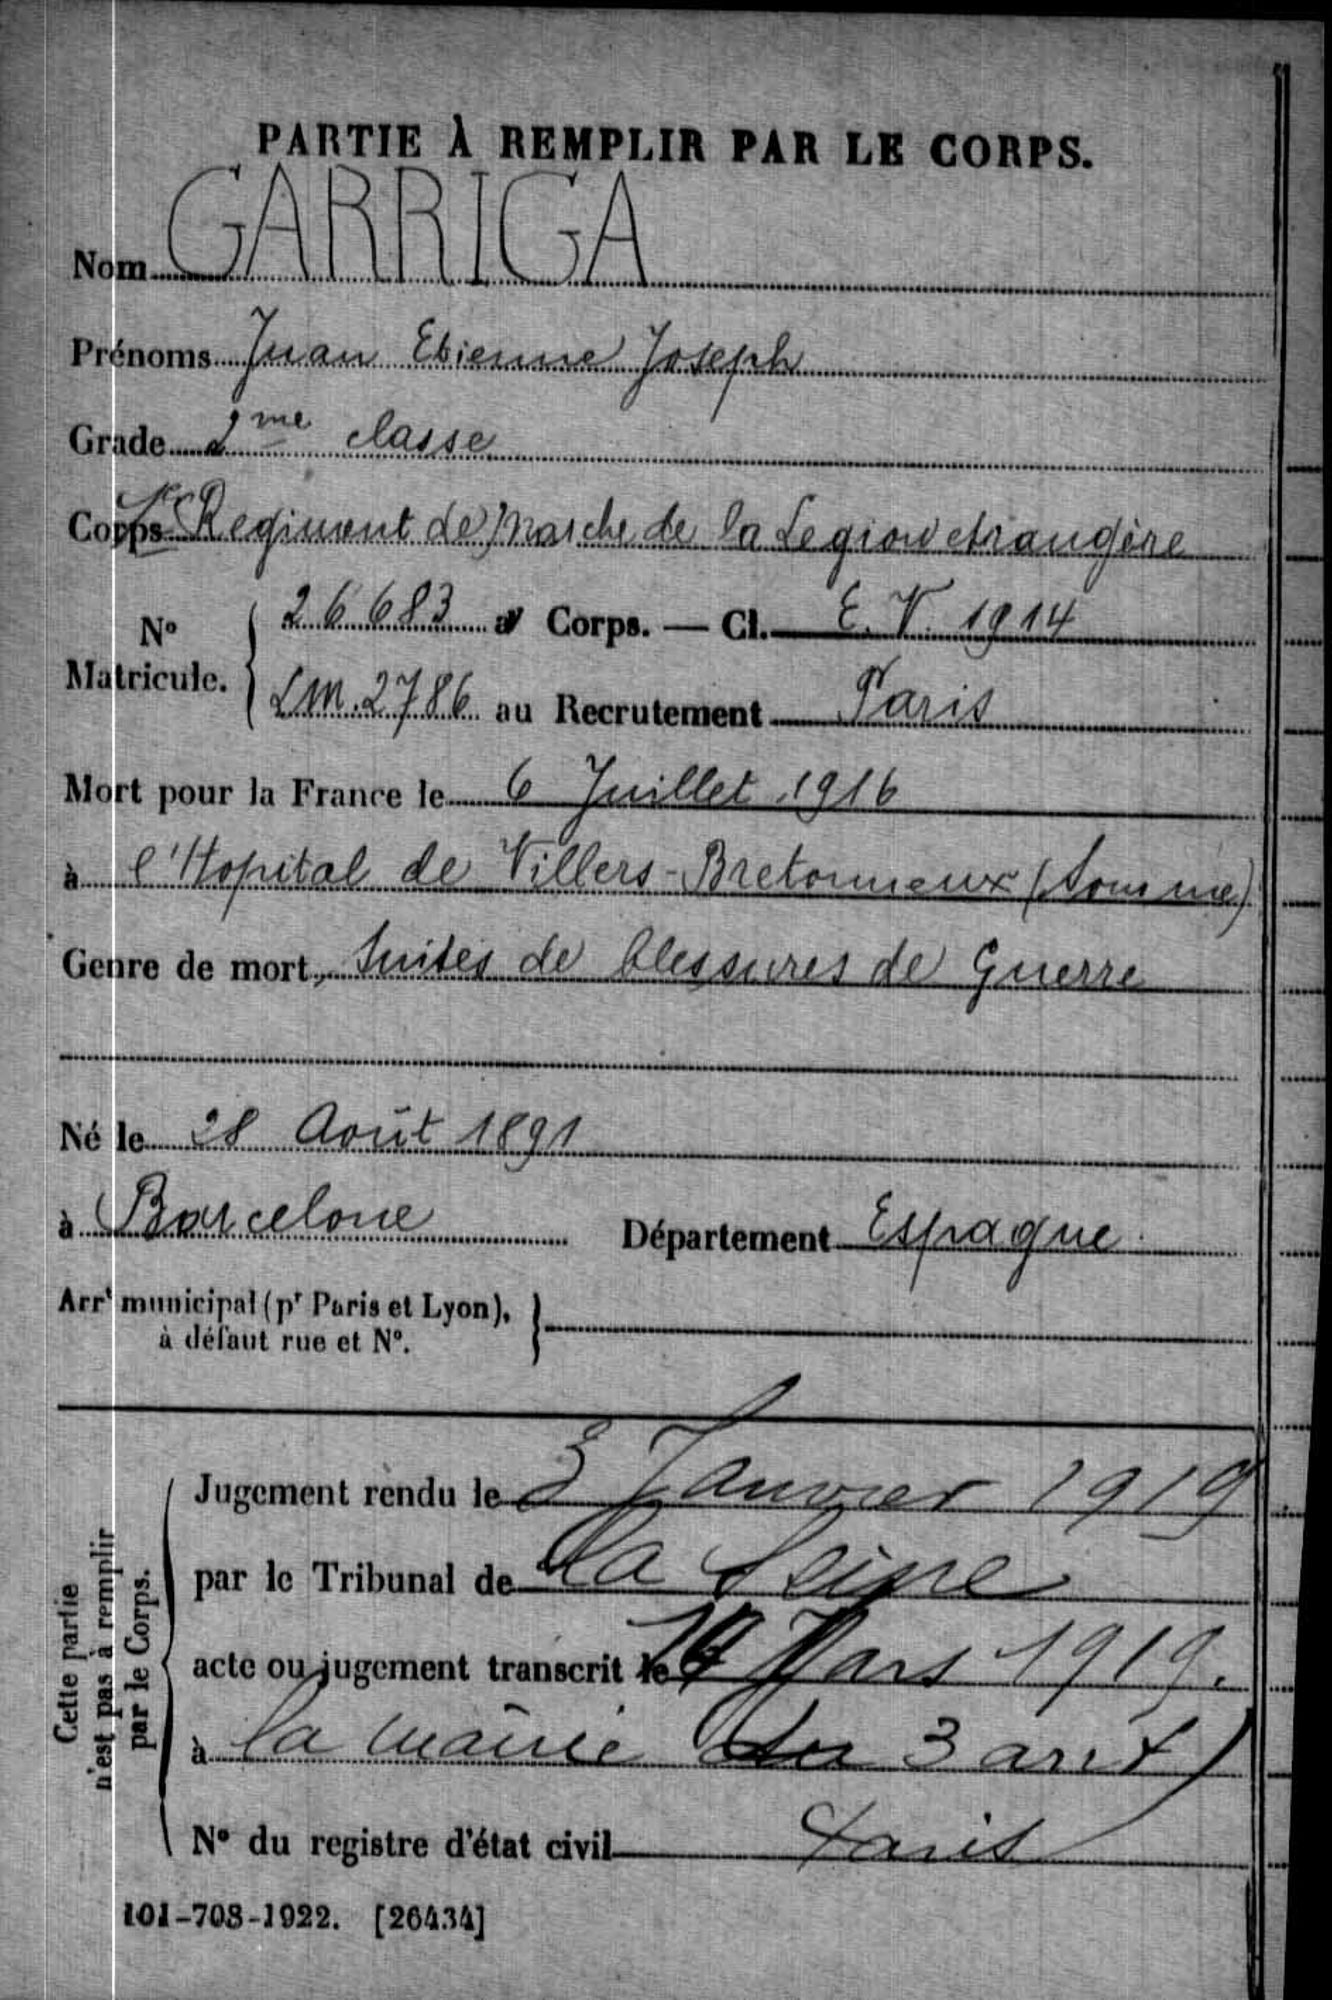 PARTIE À REMPLIR PAR LE CORPS.
Nom GARRIGA
Prénoms Juan Etienne Joseph
Grade 2me classe
Corps Régiment de Marche de la Legion etrangère
N° Matricule. { 26683 au Corps. — Cl. E.V. 1914
LM.2786 au Recrutement Paris
Mort pour la France le 6 Juillet 1916
à l'Hopital de Villers-Bretonneux (Somme)
Genre de mort Suites de blessures de Guerre
Né le 28 Août 1891
à Barcelone Département Espagne
Arrt municipal (pr Paris et Lyon),
à défaut rue et N°.
Cette partie
n'est pas à remplir
par le Corps.
Jugement rendu le 3 Janvier 1919
par le Tribunal de la Seine
acte ou jugement transcrit le Mars 1919.
à la mairie du 3 arrt
N° du registre d'état civil Paris
101-708-1922. [26434]